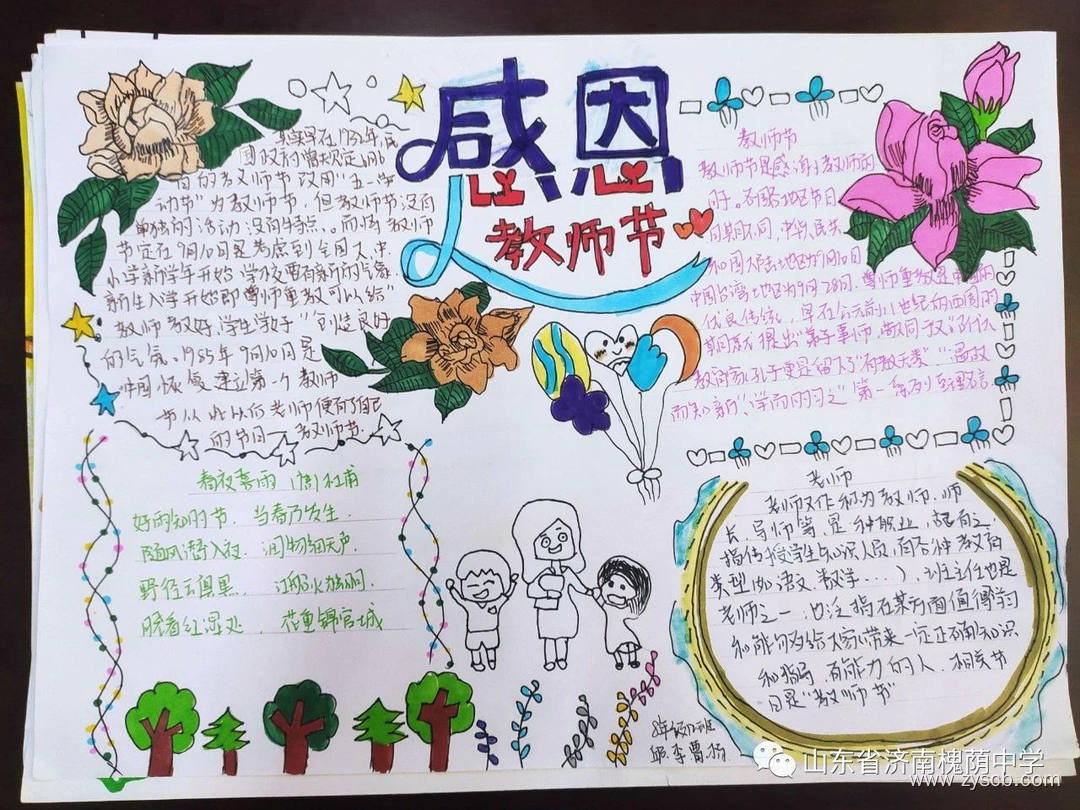 感恩
教师节
其实早在1932年,民
国政府曾规定6月6
日的教师节改用"五一劳
动节"为教师节,但教师节没有
单独的活动没有特点。而将教师
节定在9月10日是考虑到全国大、中、
小学新学年开始,学校要有新的气象.
新生入学开始即尊师重教可以给"
教师教好,学生学好"创造良好
的气氛。1985年9月10日是
中国恢复建立第一个教师
节从此以后老师便有了自己
的节日—教师节.
教师节
教师节是感谢教师的
同日期不同,中华人民共
和国大陆地区为9月10日
中国台湾地区为9月28日.尊师重教是中国的
优良传统,早在公元前11世纪的西周
而知新"、"学而时习之"
春夜喜雨 (唐)杜甫
好雨知时节. 当春乃发生.
随风潜入夜. 润物细无声.
野径云俱黑. 江船火独明.
晓看红湿处, 花重锦官城
老师
老师又作称为教师.师
长、导师等是一种职业,
指传授学生知识人员,
类型(如语文.数学....),班主任也是
老师之一.也泛指在某方面值得学习
和能够给大家带来一定正确知识
和指导.有能力的人.相关节
日是"教师节"
山东省济南槐荫中学
www.zyscb.com